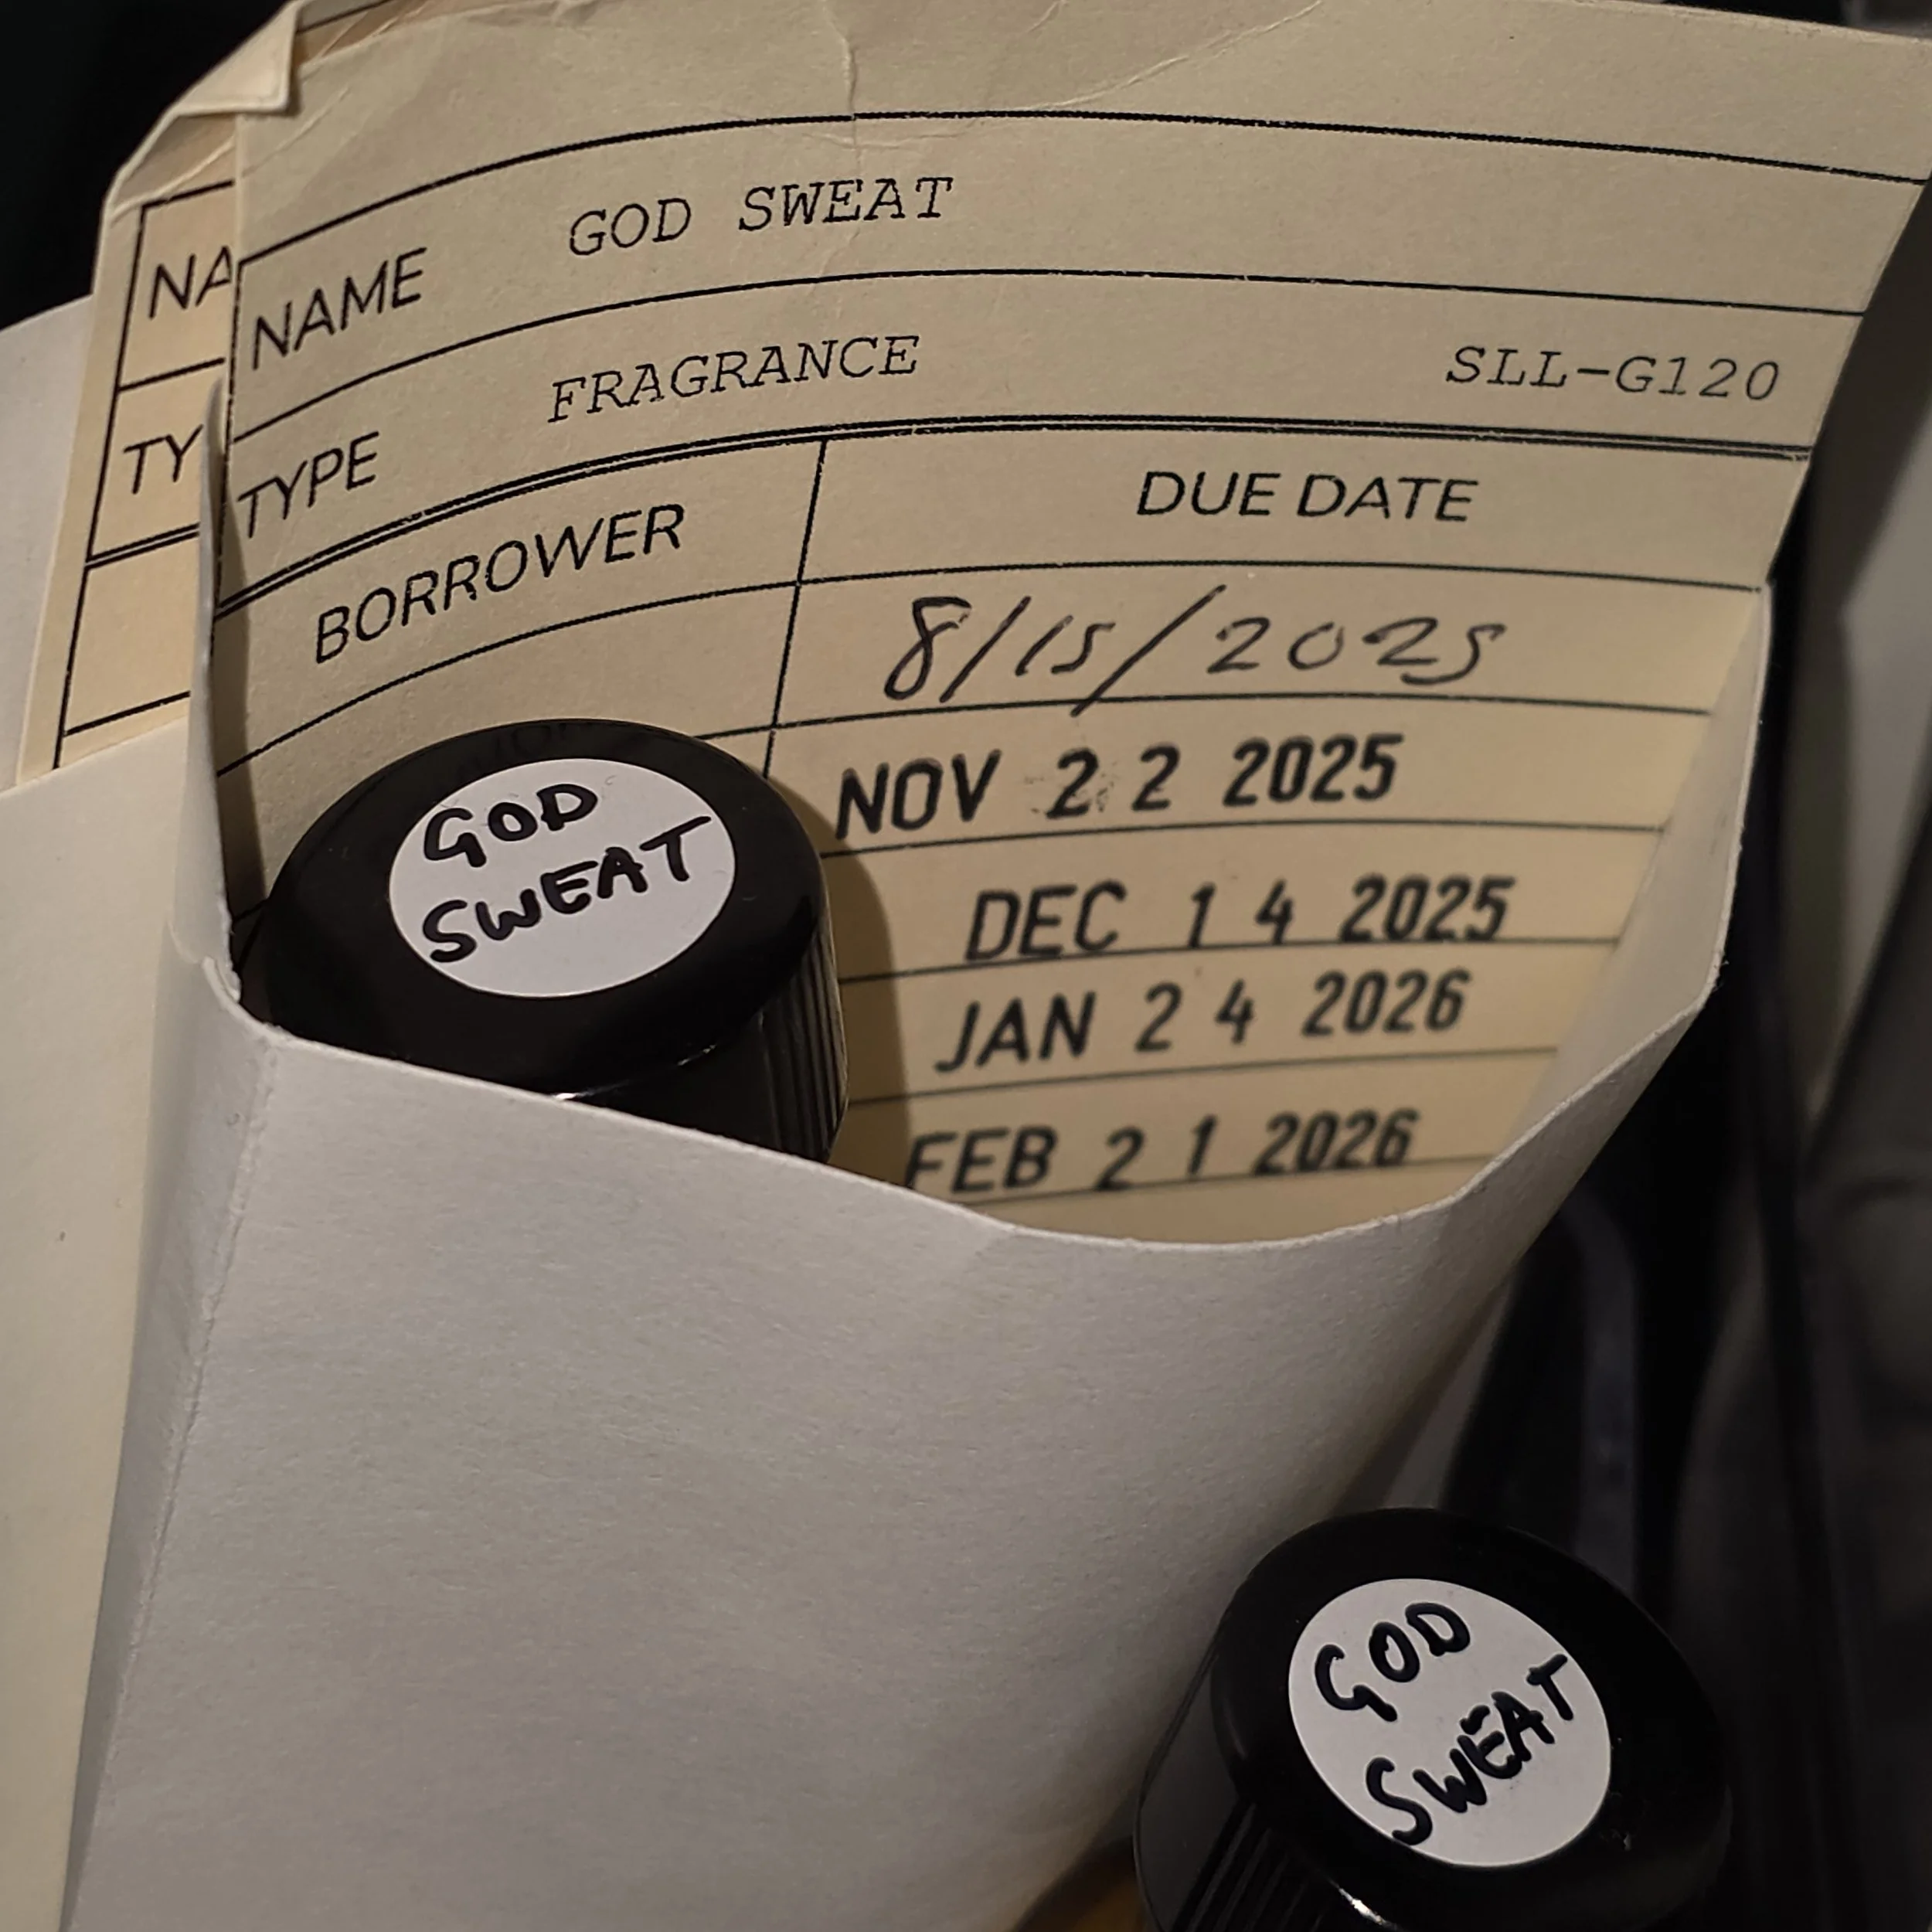 NAME GOD SWEAT
TYPE FRAGRANCE SLL-G120
BORROWER DUE DATE
8/15/2025
NOV 22 2025
DEC 14 2025
JAN 24 2026
FEB 21 2026
NA
TY
GOD
SWEAT
GOD
SWEAT